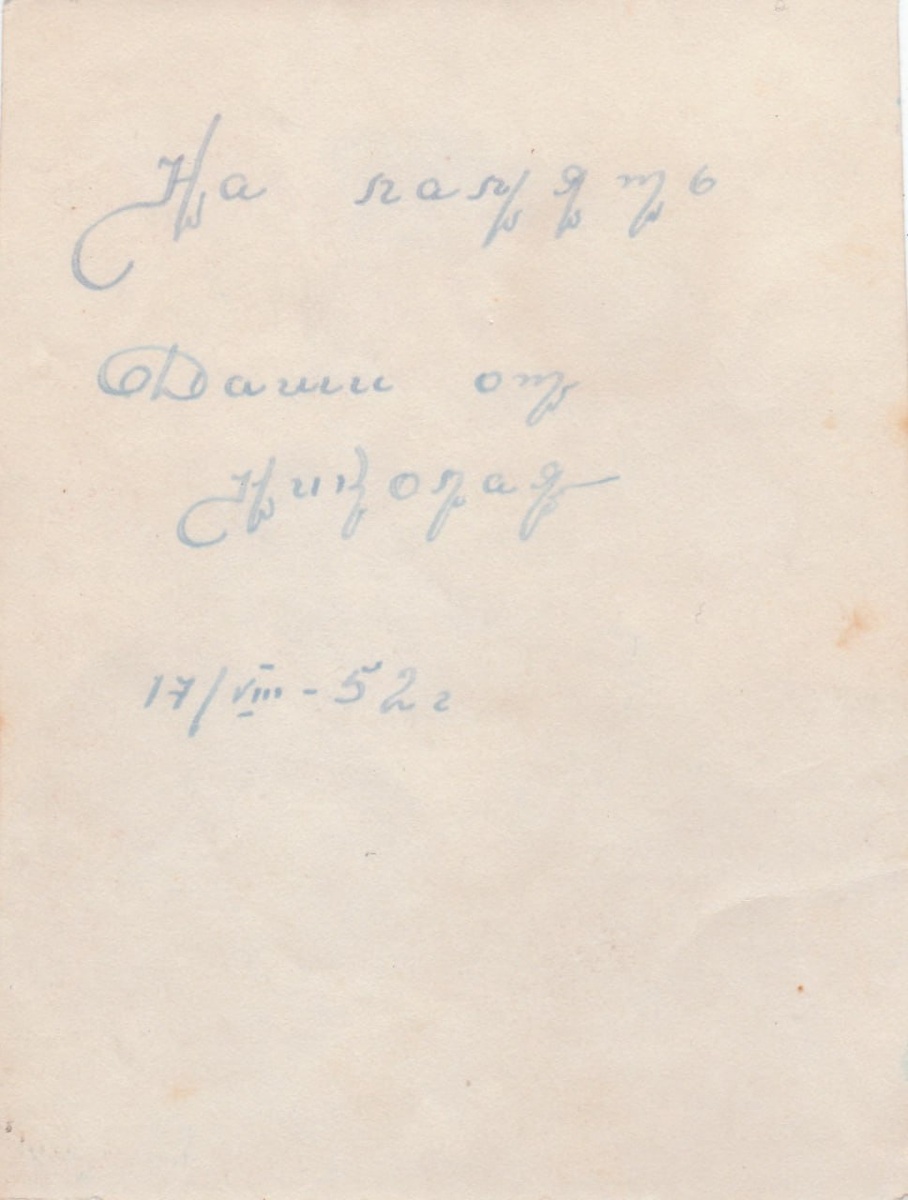 На память
Даши от
Николая
17/VIII - 52 г